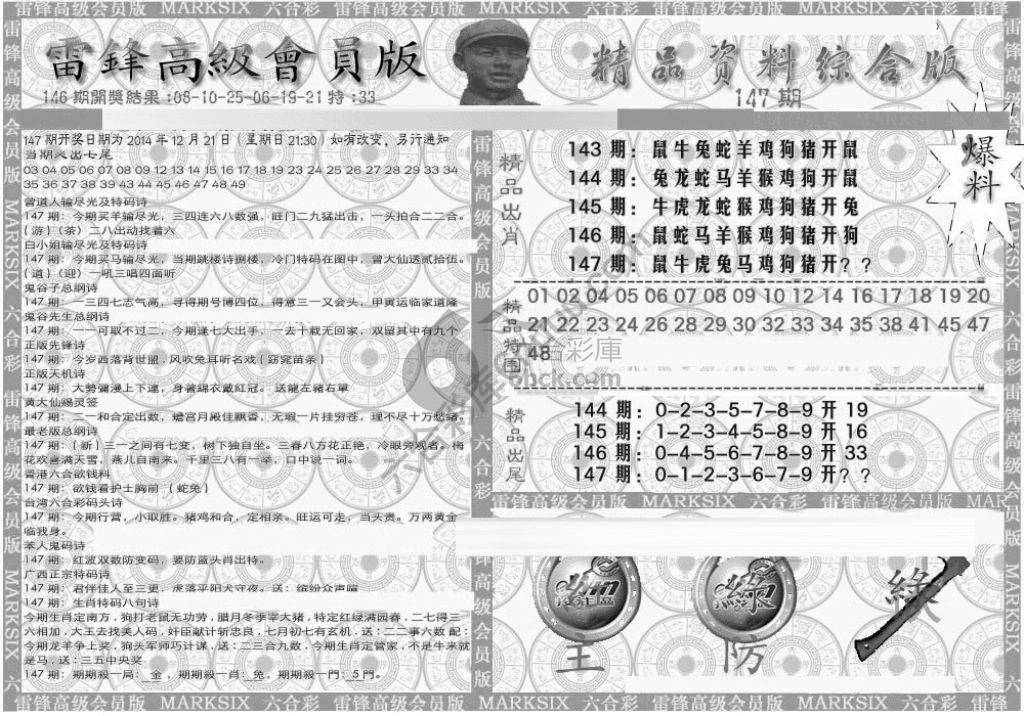 雷锋高级会员版 MARKSIX 六合彩 雷锋高级会员版 MARKSIX 六合彩 雷锋高级会员版 MARKSIX 六合彩 雷锋
雷鋒高級會員版
精品資料綜合版
146期開獎結果:08-10-25-06-19-21特:33
147期
147期开奖日期为2014年12月21日(星期日21:30)如有改变,另行通知
当期火出七尾
03 04 05 06 07 08 09 12 13 14 15 16 17 18 19 23 24 25 26 27 28 29 33 34
35 36 37 38 39 43 44 45 46 47 48 49
曾道人输尽光及特码诗
147期:今期买羊输尽光,三四连六八数强,旺门二九猛出击,一头拍合二二合。
(游)(茶)二八出动找着六
白小姐输尽光及特码诗
147期:今期买马输尽光,当期跳楼诗捌楼,冷门特码在图中,曾大仙送贰拾位。
(道)(迎)一吼三唱四面听
鬼谷子总纲诗
147期:一三四七志气高,寻得期号博四位,得意三一又会头,甲寅运临家道隆
鬼谷先生总纲诗
147期:一一可取不过二,今期逢七大出手,一去十载无回家,双留其中有九个
正版先锋诗
147期:今岁西落背世盟,风吹兔耳听名戏(窈窕苗条)
正版天机诗
147期:大勢彌漫上下連,身著綿衣戴紅冠。送龍左豬右單
黄大仙赐灵签
147期:二一和合定出数,蟾宫月殿佳飘香,无瑕一片挂穷苍,理不尽十万愁绪。
最老版总纲诗
147期:(新)三一之间有七变,树下独自坐。三春八方花正艳,冷眼旁观者。梅
花欢喜满天雪,燕儿自南来。千里三八有一举,口中说一词。
香港六合欲钱料
147期:欲钱看护士胸前(蛇兔)
台湾六合彩码头诗
147期:今期行营,小取胜。猪鸡和合,定相亲。旺运可走,当头贵。万两黄金
临我身。
苯人鬼码诗
147期:红波双数防变码,要防蓝头肖出特。
广西正宗特码诗
147期:君伴佳人至三更,虎落平阳犬守夜。送:缤纷众声喧
147期:生肖特码八句诗
今期生肖定南方,狗打老鼠无功劳,腊月冬季宰大猪,特定红绿满园春,二七得三
六相加,大王去找美人码,奸臣献计斩忠良,七月初七有玄机,送:二二事六数 配:
今期龙羊争上奖,狗头军师巧计谋,送:二三合九数,今期生肖定管家,不是牛来就
是马,送:三五中央奖
147期:期期殺一局:金,期期殺一肖:兔,期期殺一門:5門。
精品出肖
143期:鼠牛兔蛇羊鸡狗猪开鼠
144期:兔龙蛇马羊猴鸡狗开鼠
145期:牛虎龙蛇猴鸡狗猪开兔
146期:鼠蛇马羊猴鸡狗猪开狗
147期:鼠牛虎兔马鸡狗猪开??
爆料
精品特围
01 02 04 05 06 07 08 09 10 12 14 16 17 18 19 20
21 22 23 24 26 28 29 30 32 33 34 35 38 41 45 47
48
精品出尾
144期:0-2-3-5-7-8-9开19
145期:1-2-3-4-5-8-9开16
146期:0-4-5-6-7-8-9开33
147期:0-1-2-3-6-7-9开??
雷锋高级会员版 MARKSIX 六合彩 雷锋高级会员版 MAR
主
防
綠
雷锋高级会员版 MARKSIX 六合彩 雷锋高级会员版 MARKSIX 六合彩 雷锋高级会员版 MARKSIX 六合彩 雷锋